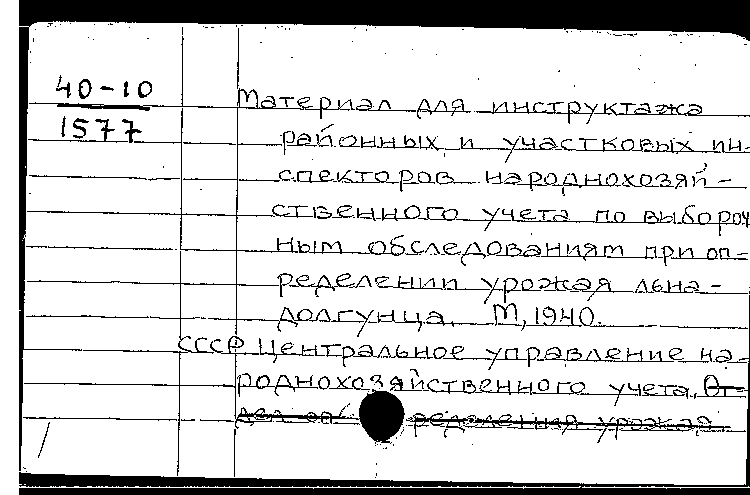 40-10
1577
Материал для инструктажа
районных и участковых ин-
спекторов народнохозяй-
ственного учета по выбороч
ным обследованиям при оп-
ределении урожая льна-
долгунца. М, 1940.
СССР Центральное управление на-
роднохозяйственного учета. От-
дел оп ределения урожая